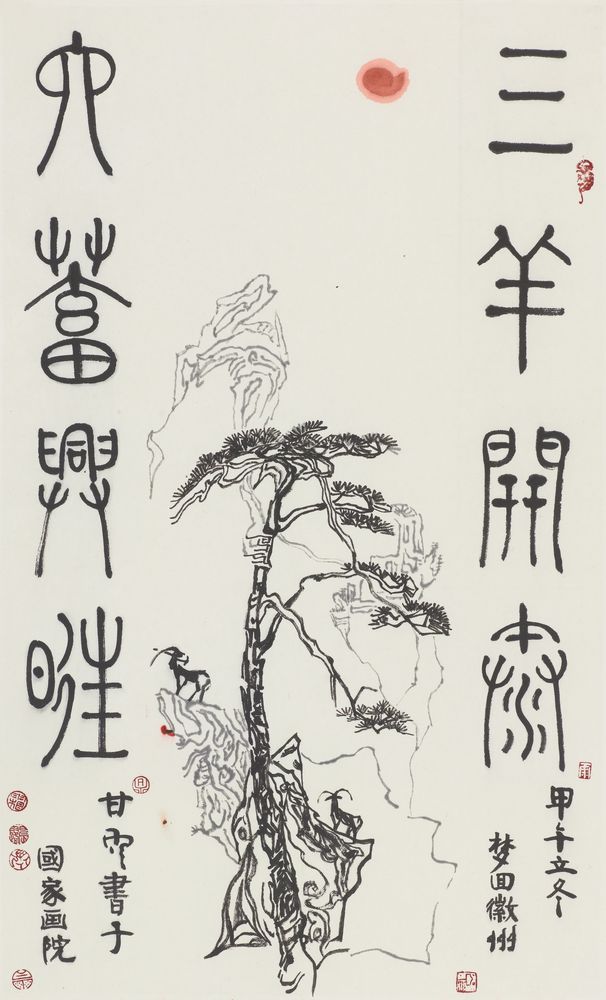 三羊開泰
甲午立冬
梦回徽州
六蓄興旺
甘雨書于
國家画院